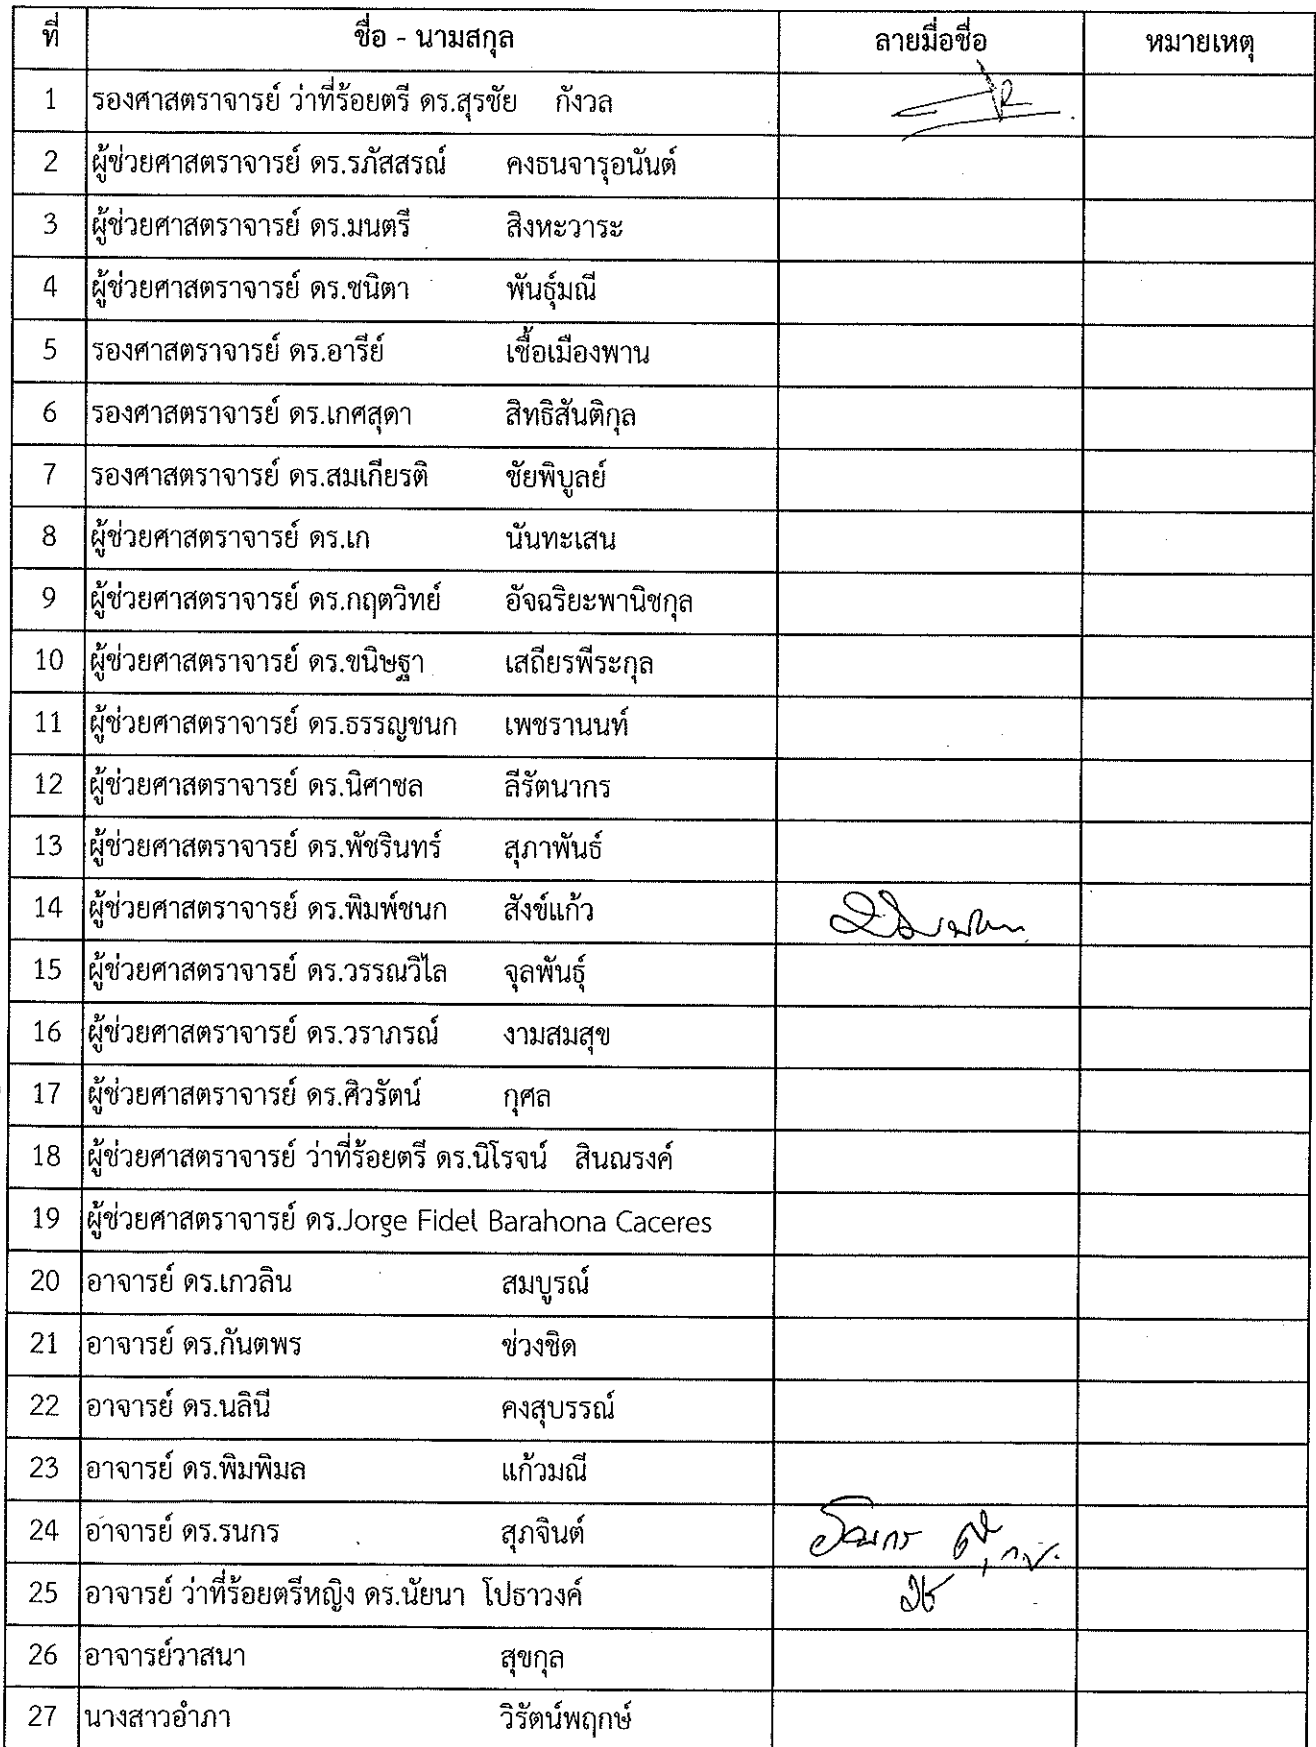 ที่ ชื่อ - นามสกุล ลายมือชื่อ หมายเหตุ
1 รองศาสตราจารย์ ว่าที่ร้อยตรี ดร.สุรชัย กังวล
2 ผู้ช่วยศาสตราจารย์ ดร.รภัสสรณ์ คงธนจารุอนันต์
3 ผู้ช่วยศาสตราจารย์ ดร.มนตรี สิงหะวาระ
4 ผู้ช่วยศาสตราจารย์ ดร.ชนิตา พันธุ์มณี
5 รองศาสตราจารย์ ดร.อารีย์ เชื้อเมืองพาน
6 รองศาสตราจารย์ ดร.เกศสุดา สิทธิสันติกุล
7 รองศาสตราจารย์ ดร.สมเกียรติ ชัยพิบูลย์
8 ผู้ช่วยศาสตราจารย์ ดร.เก นันทะเสน
9 ผู้ช่วยศาสตราจารย์ ดร.กฤตวิทย์ อัจฉริยะพานิชกุล
10 ผู้ช่วยศาสตราจารย์ ดร.ขนิษฐา เสถียรพีระกุล
11 ผู้ช่วยศาสตราจารย์ ดร.ธรรญชนก เพชรานนท์
12 ผู้ช่วยศาสตราจารย์ ดร.นิศาชล ลีรัตนากร
13 ผู้ช่วยศาสตราจารย์ ดร.พัชรินทร์ สุภาพันธ์
14 ผู้ช่วยศาสตราจารย์ ดร.พิมพ์ชนก สังข์แก้ว
15 ผู้ช่วยศาสตราจารย์ ดร.วรรณวิไล จุลพันธุ์
16 ผู้ช่วยศาสตราจารย์ ดร.วราภรณ์ งามสมสุข
17 ผู้ช่วยศาสตราจารย์ ดร.ศิวรัตน์ กุศล
18 ผู้ช่วยศาสตราจารย์ ว่าที่ร้อยตรี ดร.นิโรจน์ สินณรงค์
19 ผู้ช่วยศาสตราจารย์ ดร.Jorge Fidel Barahona Caceres
20 อาจารย์ ดร.เกวลิน สมบูรณ์
21 อาจารย์ ดร.กันตพร ช่วงชิด
22 อาจารย์ ดร.นลินี คงสุบรรณ์
23 อาจารย์ ดร.พิมพิมล แก้วมณี
24 อาจารย์ ดร.รนกร สุภจินต์
25 อาจารย์ ว่าที่ร้อยตรีหญิง ดร.นัยนา โปธาวงค์
26 อาจารย์วาสนา สุขกุล
27 นางสาวอำภา วิรัตน์พฤกษ์